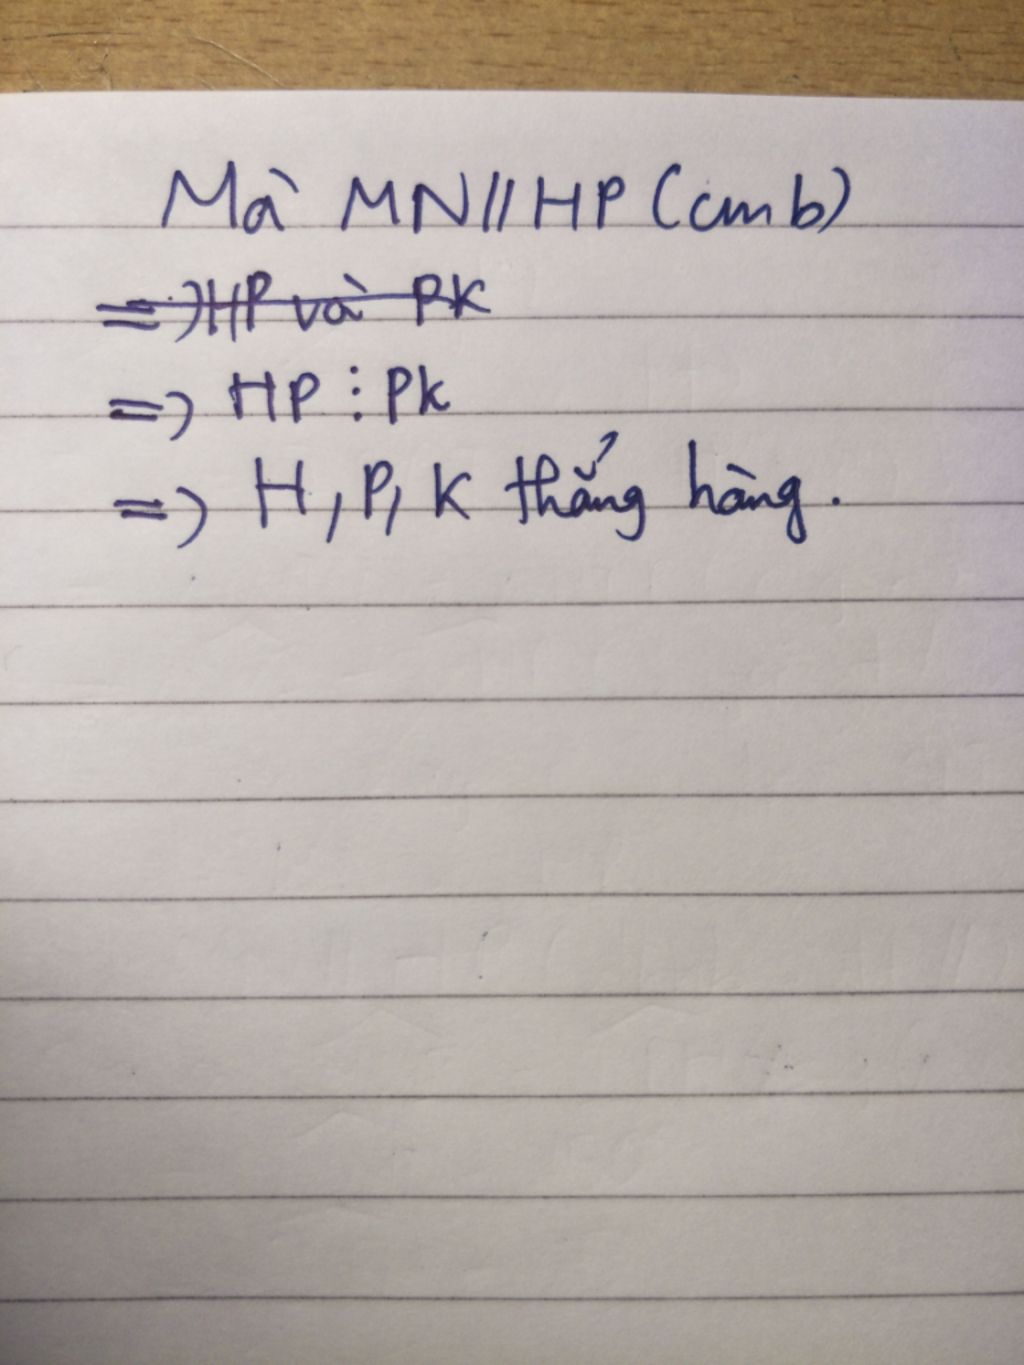 Mà MN//HP (cmb)
=> HP và PK
=> HP ⋮ PK
=> H, P, K thẳng hàng.